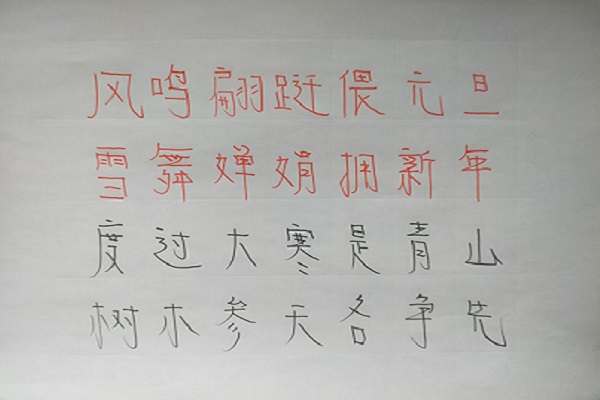 风鸣翩跹偎元旦
雪舞婵娟拥新年
度过大寒是青山
树木参天各争先